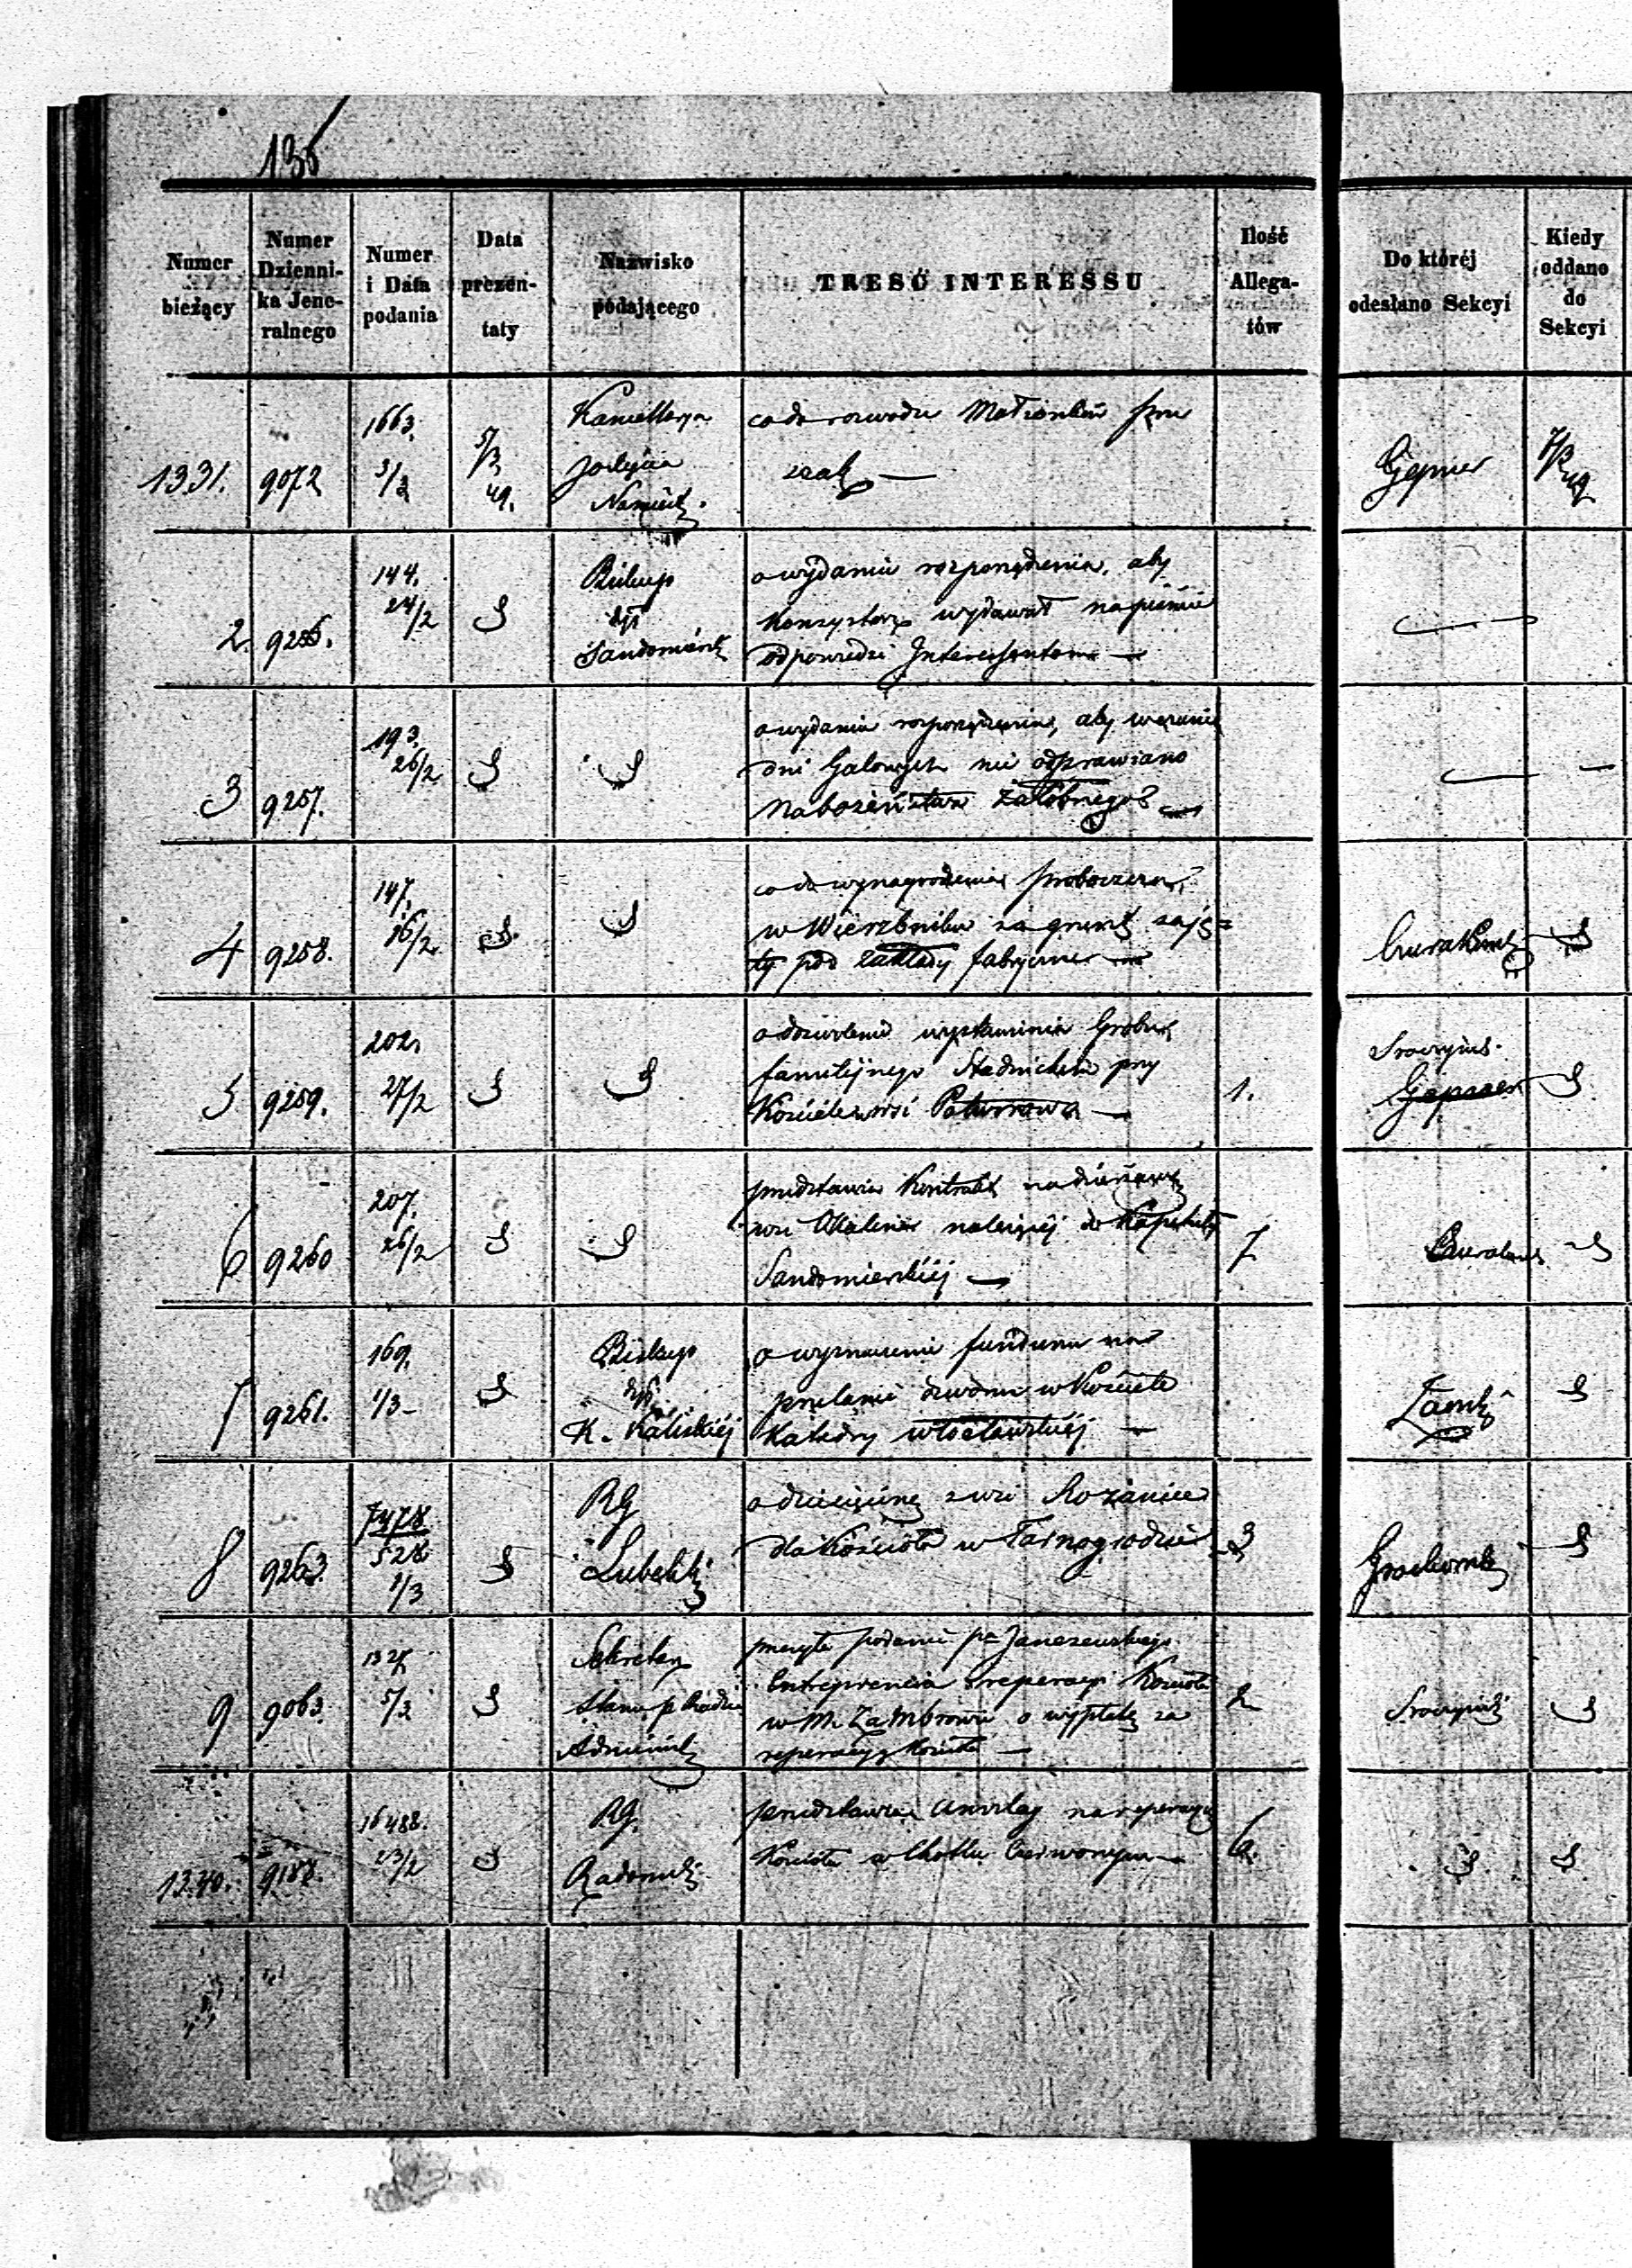 135
Numer bieżący
Numer Dziennika Jeneralnego
Numer i Data podania
Data prezentaty
Nazwisko podającego
TREŚĆ INTERESSU
Ilość Allegatów
Do któréj odesłano Sekcyi
Kiedy oddano do Sekcyi
1331. 9072 1663. 5/3 49.
co do rozwodu Małżonków
Gepner 7/3 49
2. 9256. 144. 24/2 Biskup Dyi Sandomirsk
o wydanie rozporządzenia, aby
Konsystorz wydawał na piśmie
odpowiedzi Interessentom —
3 9257. 193. 26/2
o wydanie rozporządzenia, aby w czasie
dni Galowych nie odprawiano
Nabożeństwa żałobnego —
4 9258. 147. 26/2
co do wynagrodzenia proboszcza
w Wierzbniku za grunt zaję=
ty pod zakłady fabryczne —
5 9259. 202. 27/2
o dozwolenie wystawienia Grobu
familijnego Stadnickich przy
Kościele wsi —
1.
Gepner
6 9260 207. 26/2
przedstawia Kontrakt na dzierżawę
wsi należącej do Kapituły
Sandomierskiéj —
7
7 9261. 169. 1/3 Biskup Dyi K. Kaliskiéj
o wyznaczenie funduszu na
przelanie dzwonu w Kościele
Katedry włocławskiéj —
8 9263. 7478 528 1/3 RG Lubelski
o dziesięcinę z wsi Rożaniec
dla Kościoła w Tarnogrodzie
3
9 9063. 5/3 Sekretarz Stanu p Radzie Administ
podanie pa Janczewskiego
Entreprenera reperacyi Kościoła
w M. Zambrowie o wypłatę za
reperacyę Kościoła —
2
1340. 9188. 16488. 23/2 RG. Radomski
przedstawia Anszlag na reperacyę
Kościoła w Chotlu Czerwonym —
6.